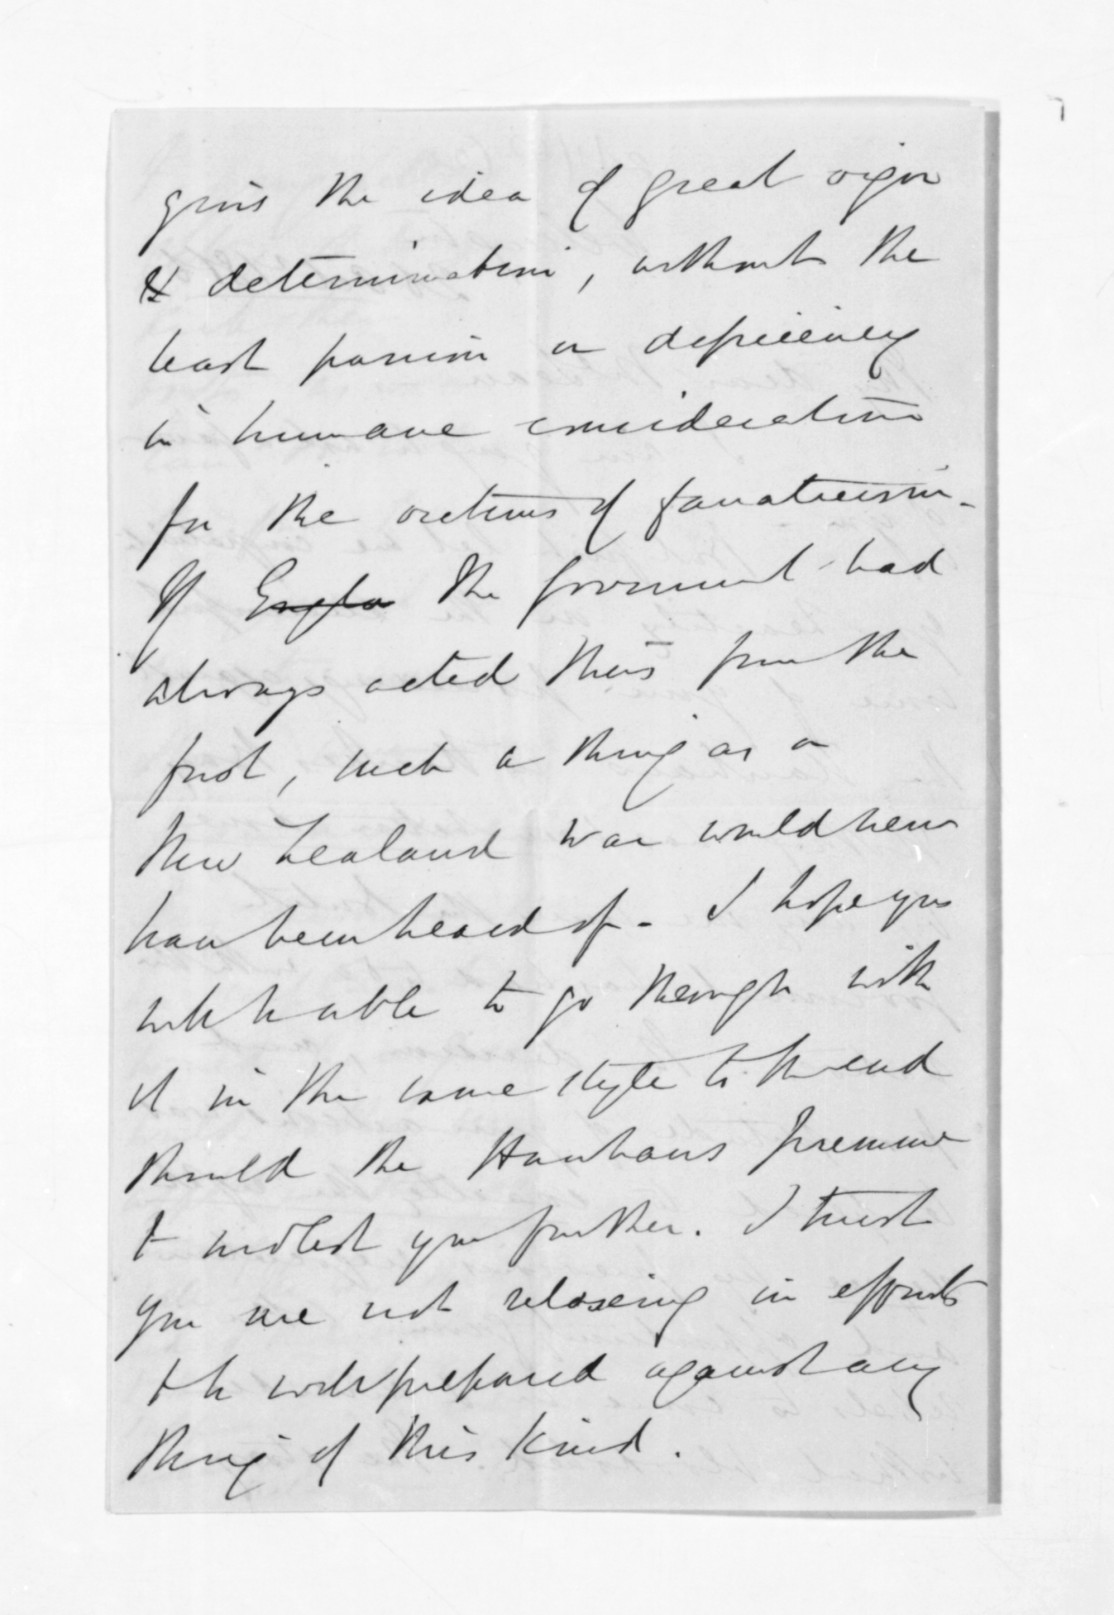 gives the idea of great vigor
& determination, without the
least passion or deficiency
in humane consideration
for the victims of fanaticism.
If Engla the Government had
always acted thus from the
first, such a thing as a
New Zealand war would never
have been heard of - I hope you
will be able to go through with
it in the same style to the end
should the Hauhaus presume
to molest you further. I trust
you are not relaxing in efforts
to be well prepared against any
thing of this kind.